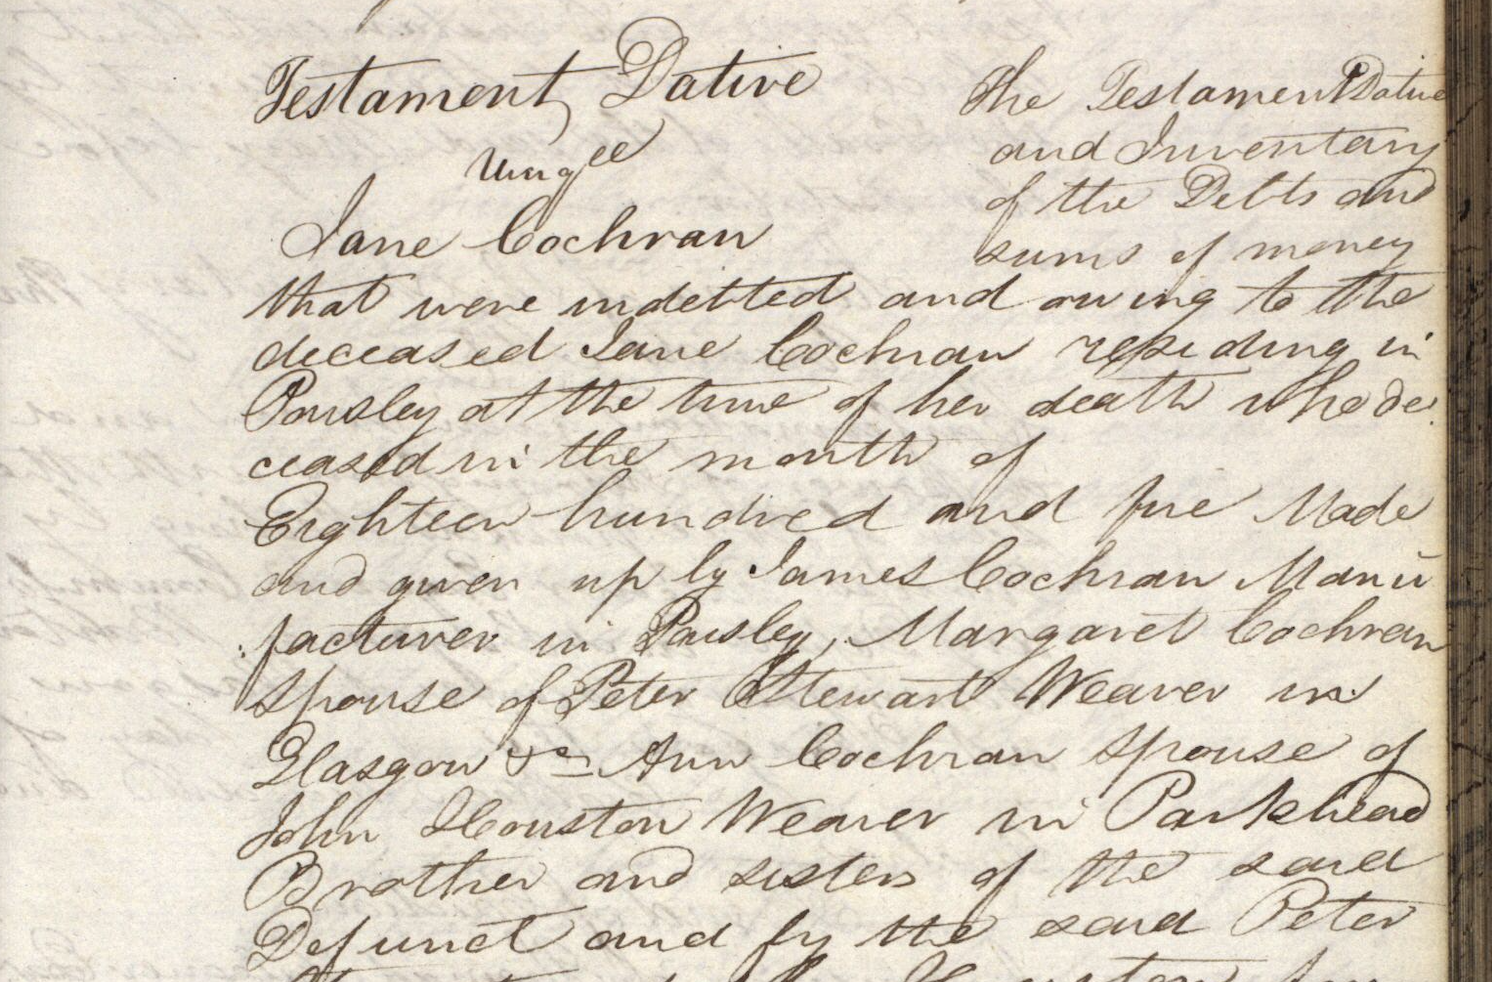 Testament Dative
Umqll
Jane Cochran
The Testament Dative
and Inventary
of the Debts and
sums of money
that were indebted and owing to the
deceased Jane Cochran residing in
Paisley at the time of her death who de:
ceased in the month of
Eighteen hundred and five Made
and given up by James Cochran Manu
:facturer in Paisley, Margaret Cochran
Spouse of Peter Stewart Weaver in
Glasgow & Ann Cochran Spouse of
John Houston Weaver in Parkhead
Brother and sisters of the said
Defunct and by the said Peter